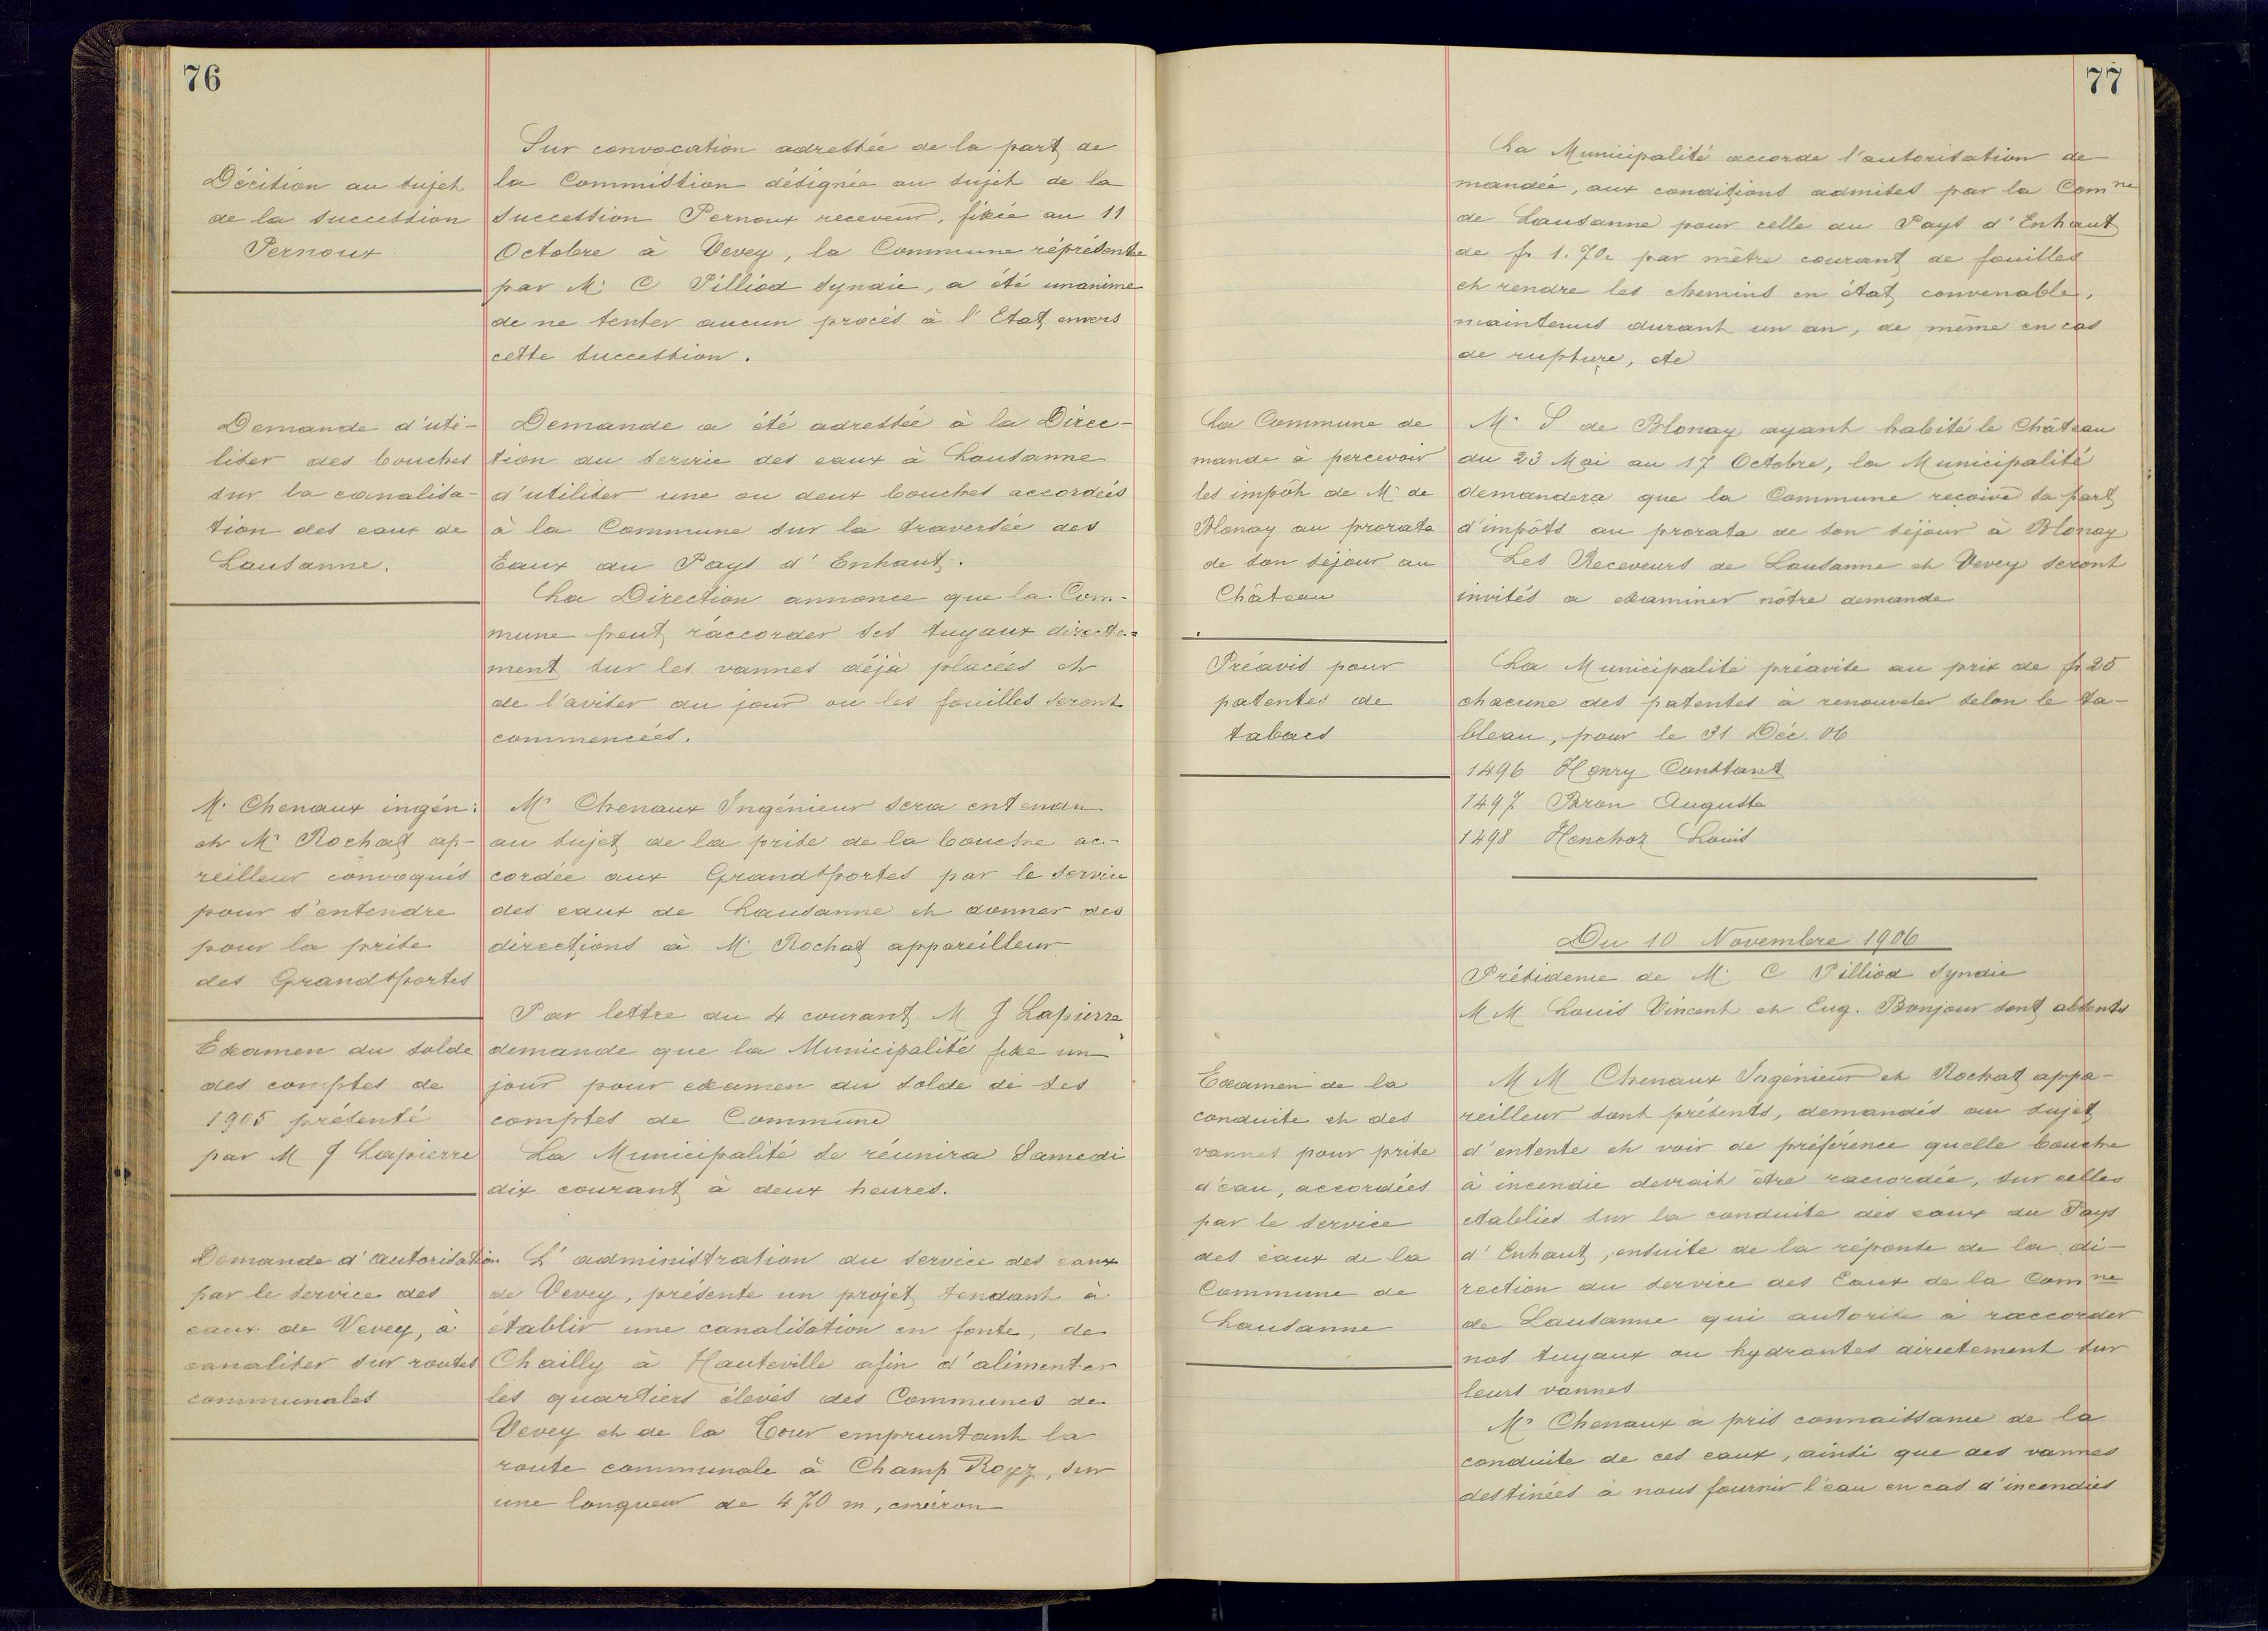 76
Décision au sujet
de la succession
Pernoux
Sur convocation adressée de la part de
la Commission désignée au sujet de la
succession Pernoux receveur, fixée au 11
Octobre à Vevey, la Commune réprésentée
par Mr C Pilliod syndic, a été unanime
de ne tenter aucun procès à l'Etat envers
cette succession.
Demande d'uti-
liser des bouches
sur la canalisa-
tion des eaux de
Lausanne.
Demande a été adressée à la Direc-
tion du service des eaux à Lausanne
d'utiliser une ou deux bouches accordées
à la Commune sur la traversée des
Eaux du Pays d'Enhaut.
La Direction annonce que la Com-
mune peut raccorder ses tuyaux directe-
ment sur les vannes déjà placées et
de l'aviser du jour ou les fouilles seront
commencées.
Mr Chenaux ingén:
et Mr Rochat ap-
reilleur convoqués
pour s'entendre
pour la prise
des Grandsportes
Mr Chenaux Ingénieur sera entendu
au sujet de la prise de la bouche ac-
cordée aux Grandsportes par le service
des eaux de Lausanne et donner des
directions à Mr Rochat appareilleur
Examen du solde
des comptes de
1905 présenté
par M J Lapierre
Par lettre du 4 courant M J Lapierre
demande que la Municipalité fixe un
jour pour examen du solde de ses
comptes de Commune
La Municipalité se réunira Samedi
dix courant à deux heures.
Demande d'autorisation
par le service des
eaux de Vevey, à
canaliser sur routes
communales
L'administration du service des eaux
de Vevey, présente un projet tendant à
établir une canalisation en fonte, de
Chailly à Hauteville afin d'alimenter
les quartiers élevés des Communes de
Vevey et de la Tour empruntant la
route communale à Champ Royz, sur
une longueur de 470 m, environ
77
La Municipalité accorde l'autorisation de-
mandée, aux conditions admises par la Comne
de Lausanne pour celle du Pays d'Enhaut
de fr 1.70c par mètre courant de fouilles
et rendre les chemins en état convenable,
maintenus durant un an, de même en cas
de rupture, etc
La Commune de
mande à percevoir
les impôts de Mr de
Blonay au prorata
de son séjour au
Château
Mr S de Blonay ayant habité le Château
du 23 Mai au 17 Octobre, la Municipalité
demandera que la Commune reçoive sa part
d'impôts au prorata de son séjour à Blonay
Les Receveurs de Lausanne et Vevey seront
invités a examiner nôtre demande
Préavis pour
patentes de
tabacs
La Municipalité préavise au prix de fr 25
chacune des patentes à renouveler selon le ta-
bleau, pour le 31 Déc. 06
1496 Henry Constant
1497 Bron Auguste
1498 Henchoz Louis
Du 10 Novembre 1906
Présidence de Mr C Pilliod syndic
MM Louis Vincent et Eug. Bonjour sont absents
Examen de la
conduite et des
vannes pour prise
d'eau, accordées
par le service
des eaux de la
Commune de
Lausanne
MM Chenaux Ingénieur et Rochat appa-
reilleur sont présents, demandés au sujet
d'entente et voir de préférence quelle bouche
à incendie devrait être raccordée, sur celles
etablies sur la conduite des eaux du Pays
d'Enhaut, ensuite de la réponse de la di-
rection du service des Eaux de la Comne
de Lausanne qui autorise à raccorder
nos tuyaux ou hydrantes directement sur
leurs vannes
Mr Chenaux à pris connaissance de la
conduite de ces eaux, ainsi que des vannes
destinées à nous fournir l'eau en cas d'incendies